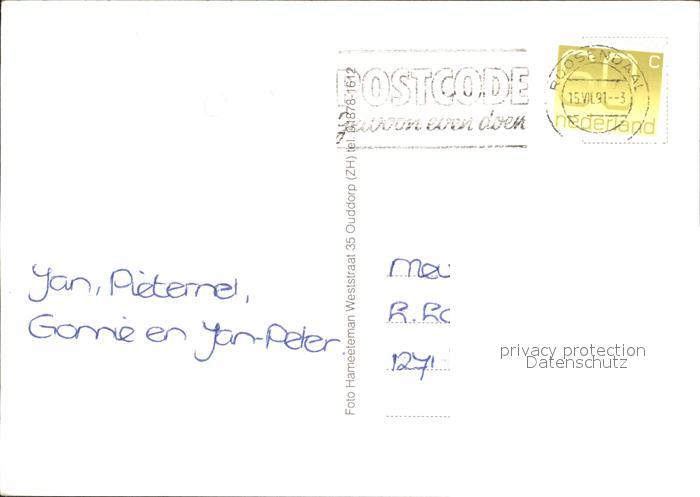 POSTCODE
gewoon even doen
ROOSENDAAL
15.VII.91--3
60 C
nederland
Foto Hameeteman Weststraat 35 Ouddorp (ZH) tel. 01878-1612
Jan, Pieternel,
Gonnie en Jan-Peter
R.
1271
privacy protection
Datenschutz